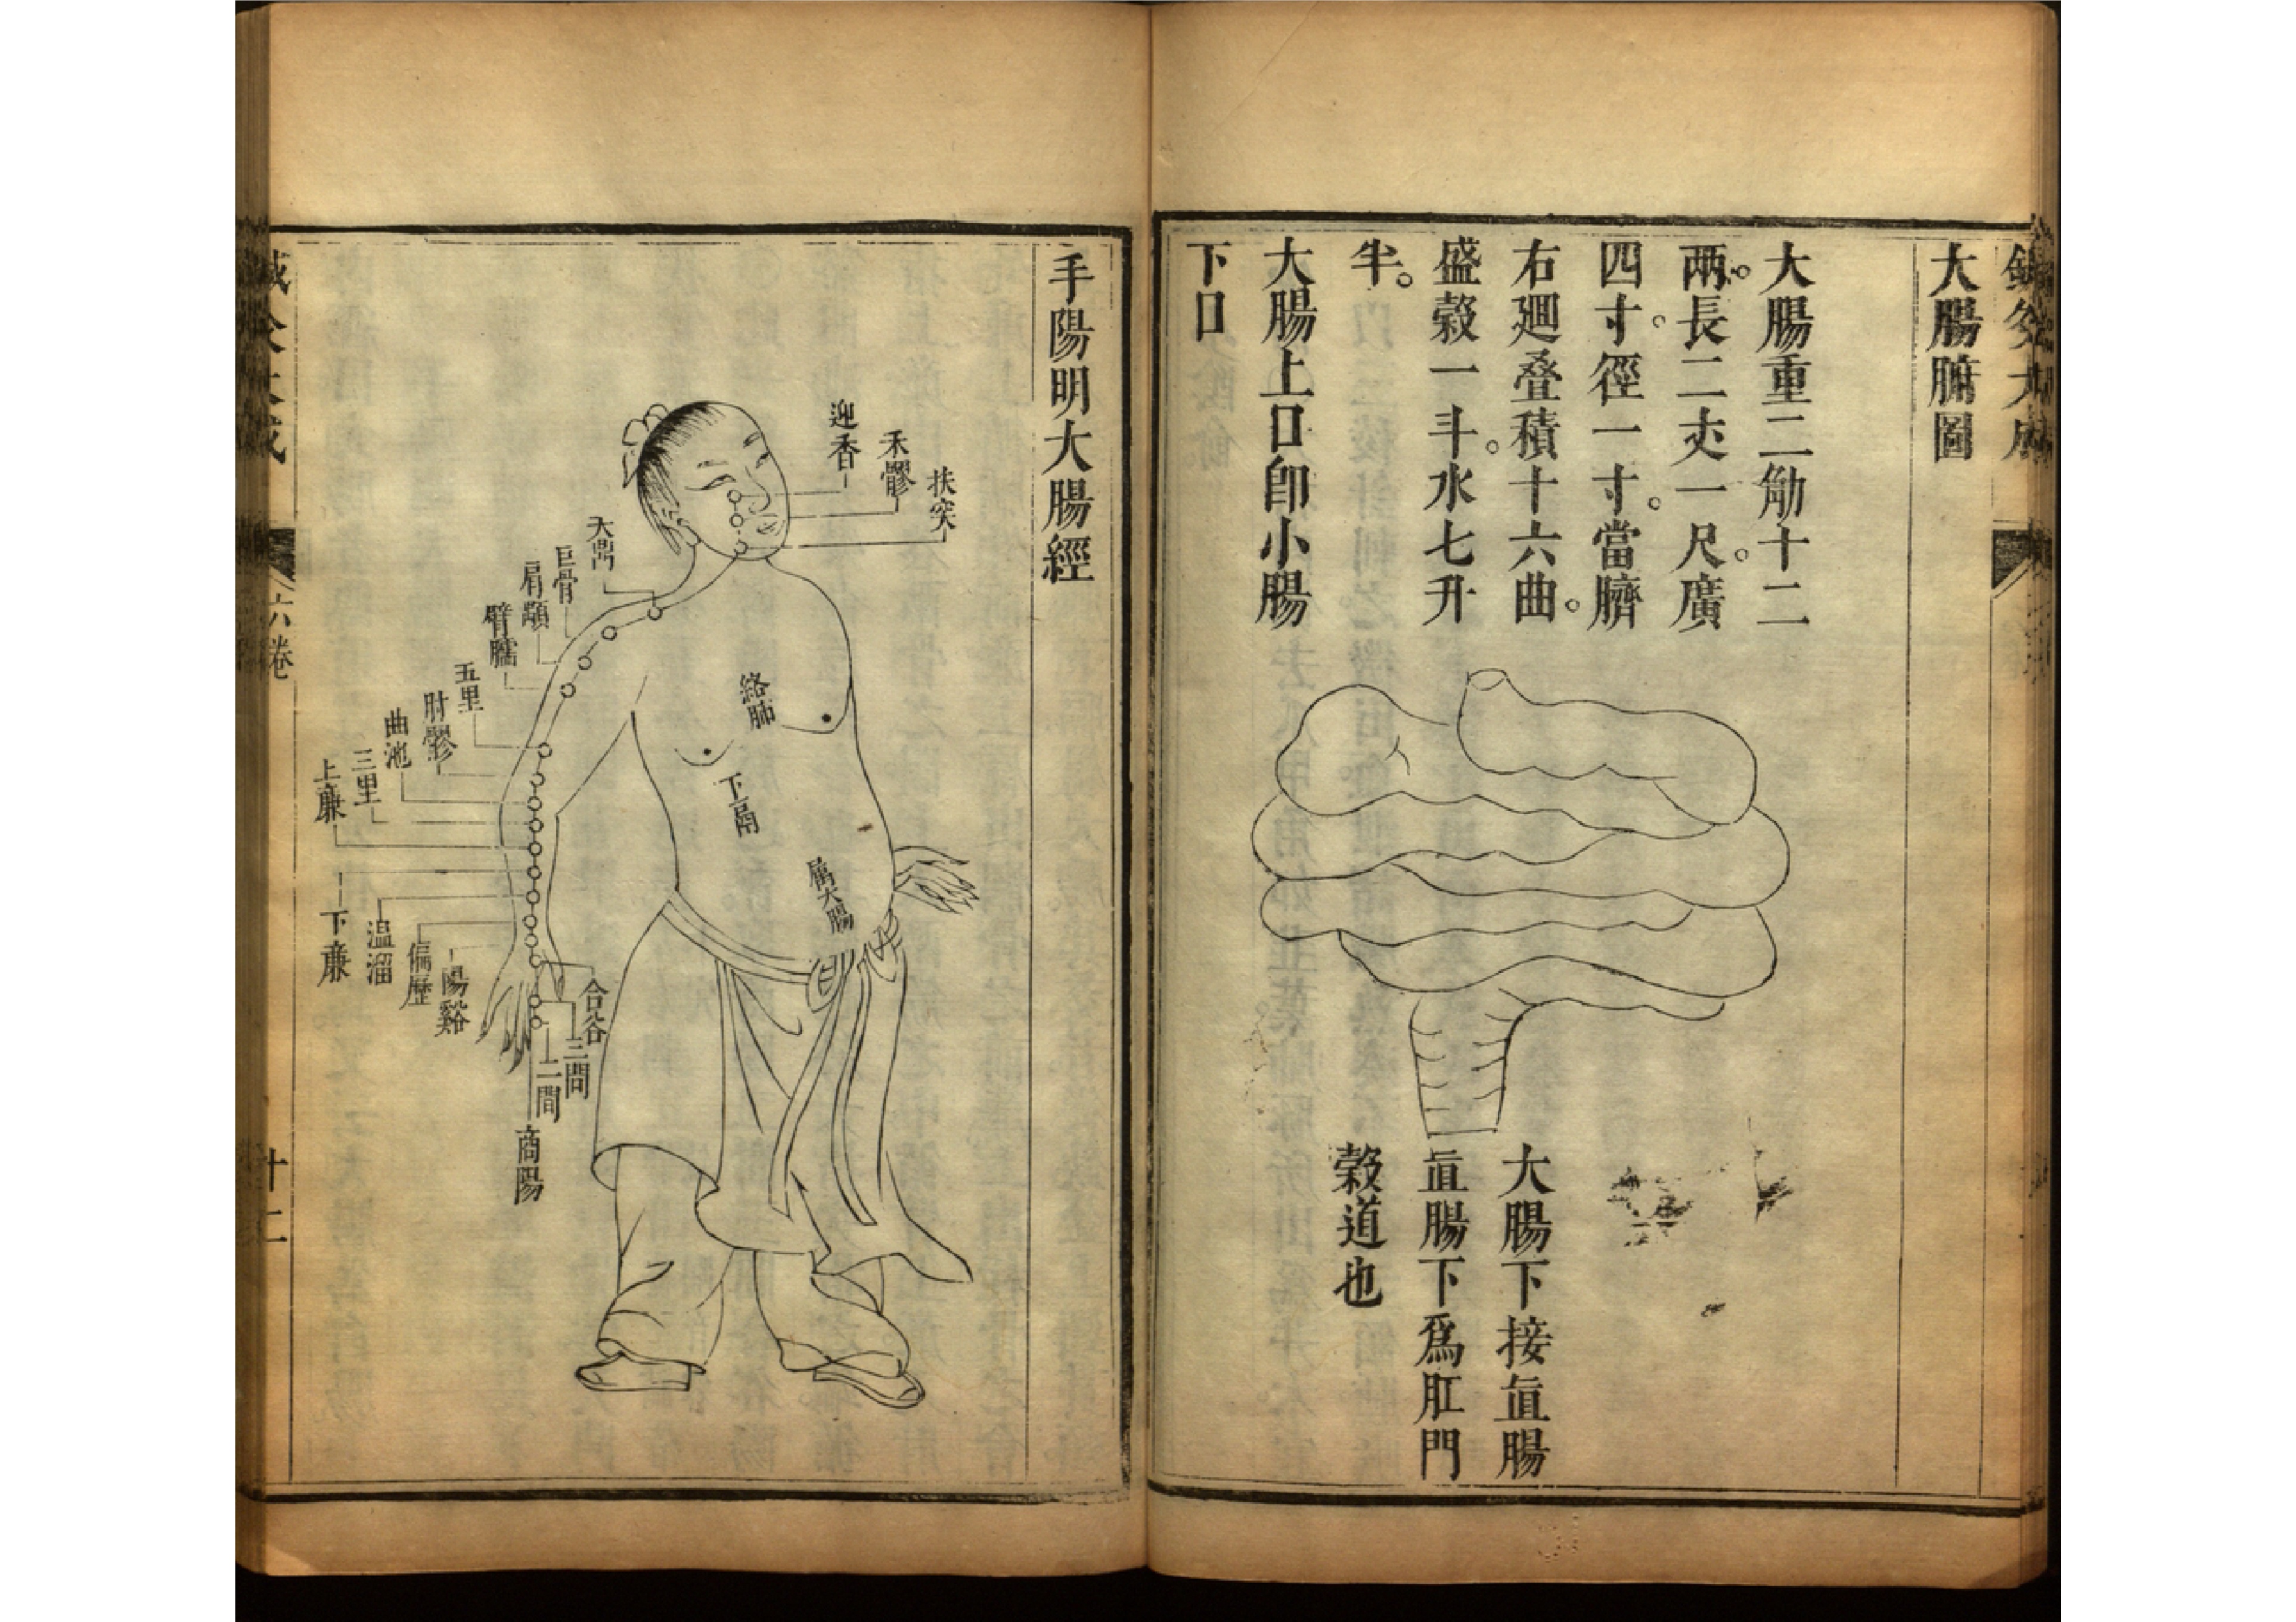 大腸腑圖
大腸重二觔十二
兩。長二丈一尺。廣
四寸。徑一寸。當臍
右廻叠積十六曲。
盛穀一斗。水七升
半。
大腸上口卽小腸
下口
大腸下接直腸
直腸下爲肛門
穀道也
手陽明大腸經
扶突
禾髎
迎香
天鼎
巨骨
肩顒
臂臑
五里
肘髎
曲池
三里
上廉
下廉
温溜
偏歷
陽谿
合谷
三間
二間
商陽
絡肺
下膈
屬大腸
六卷
十二